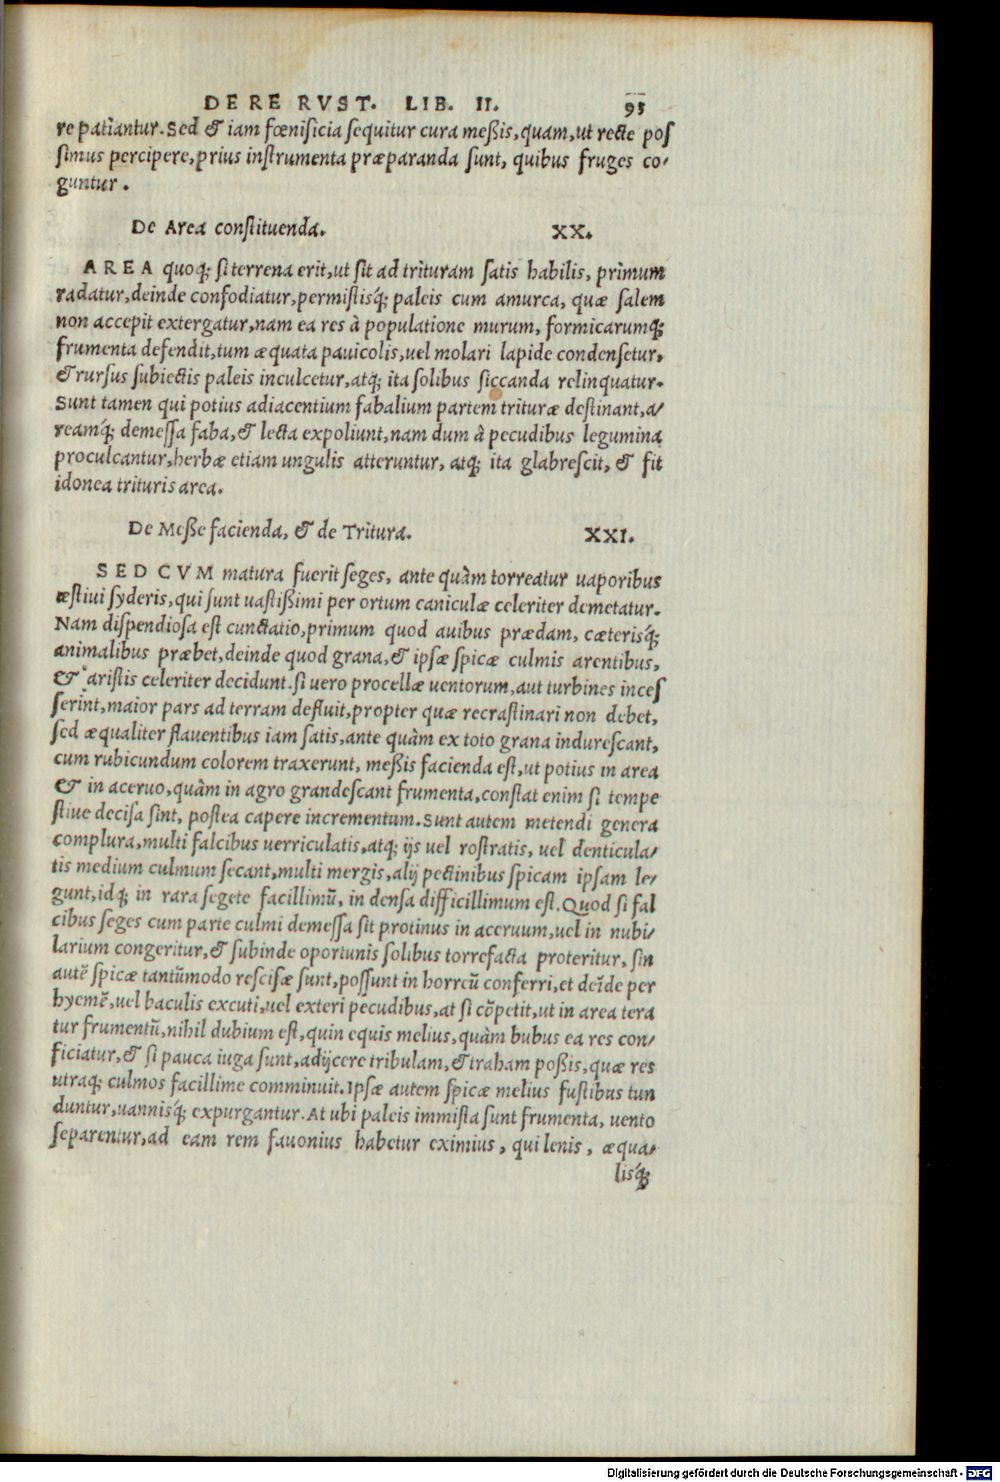 DE RE RVST. LIB. II. 95
re patiantur. Sed & iam fœnisicia sequitur cura meßis, quam, ut recte pos
simus percipere, prius instrumenta præparanda sunt, quibus fruges co-
guntur.
De Area constituenda. XX.
AREA quoq; si terrena erit, ut sit ad trituram satis habilis, primum
radatur, deinde confodiatur, permistisq́; paleis cum amurca, quæ salem
non accepit extergatur, nam ea res à populatione murum, formicarumq́;
frumenta defendit, tum æquata pauicolis, uel molari lapide condensetur,
& rursus subiectis paleis inculcetur, atq; ita solibus siccanda relinquatur.
Sunt tamen qui potius adiacentium fabalium partem trituræ destinant, a-
reamq́; demessa faba, & lecta expoliunt, nam dum à pecudibus legumina
proculcantur, herbæ etiam ungulis atteruntur, atq; ita glabrescit, & fit
idonea trituris area.
De Meße facienda, & de Tritura. XXI.
SED CVM matura fuerit seges, ante quàm torreatur uaporibus
æstiui syderis, qui sunt uastißimi per ortum caniculæ celeriter demetatur.
Nam dispendiosa est cunctatio, primum quod auibus prædam, cæterisq́;
animalibus præbet, deinde quod grana, & ipsæ spicæ culmis arentibus,
& aristis celeriter decidunt. si uero procellæ uentorum, aut turbines inces
serint, maior pars ad terram defluit, propter quæ recrastinari non debet,
sed æqualiter flauentibus iam satis, ante quàm ex toto grana indurescant,
cum rubicundum colorem traxerunt, meßis facienda est, ut potius in area
& in aceruo, quàm in agro grandescant frumenta, constat enim si tempe
stiue decisa sint, postea capere incrementum. Sunt autem metendi genera
complura, multi falcibus uerriculatis, atq; ijs uel rostratis, uel denticula-
tis medium culmum secant, multi mergis, alij pectinibus spicam ipsam le-
gunt, idq; in rara segete facillimū, in densa difficillimum est. Quod si fal
cibus seges cum parte culmi demessa sit protinus in aceruum, uel in nubi-
larium congeritur, & subinde oportunis solibus torrefacta proteritur, sin
autē spicæ tantūmodo rescisæ sunt, possunt in horreū conferri, et deīde per
hyemē, uel baculis excuti, uel exteri pecudibus, at si cōpetit, ut in area tera
tur frumentū, nihil dubium est, quin equis melius, quàm bubus ea res con-
ficiatur, & si pauca iuga sunt, adijcere tribulam, & traham poßis, quæ res
utraq; culmos facillime comminuit. Ipsæ autem spicæ melius fustibus tun
duntur, uannisq́; expurgantur. At ubi paleis immista sunt frumenta, uento
separentur, ad eam rem fauonius habetur eximius, qui lenis, æqua-
lisq́;
Digitalisierung gefördert durch die Deutsche Forschungsgemeinschaft - DFG